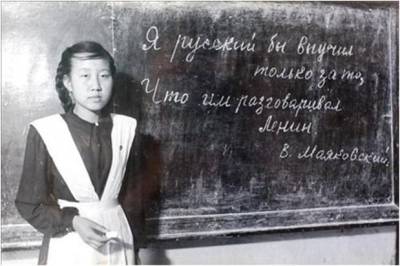 Я русский бы выучил
только за то,
Что им разговаривал
Ленин.
В. Маяковский.